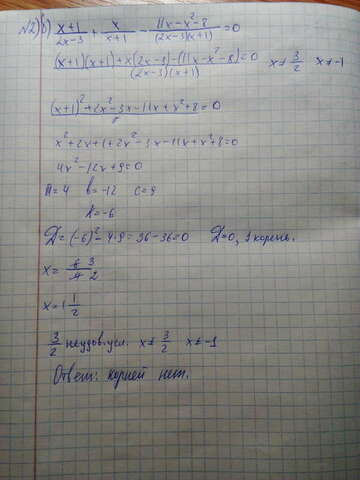 №2) б) (x+1)/(2x-3) + x/(x+1) - (11x-x²-8)/((2x-3)(x+1)) = 0
((x+1)(x+1)+x(2x-3)-(11x-x²-8))/((2x-3)(x+1)) = 0 x≠3/2 x≠-1
(x+1)²+2x²-3x-11x+x²+8=0
x²+2x+1+2x²-3x-11x+x²+8=0
4x²-12x+9=0
a=4 b=-12 c=9
k=-6
D=(-6)²-4·9=36-36=0 D=0, 1 корень.
x= 6/4 3/2
x=1 1/2
3/2 неудов. усл. x≠3/2 x≠-1
Ответ: корней нет.